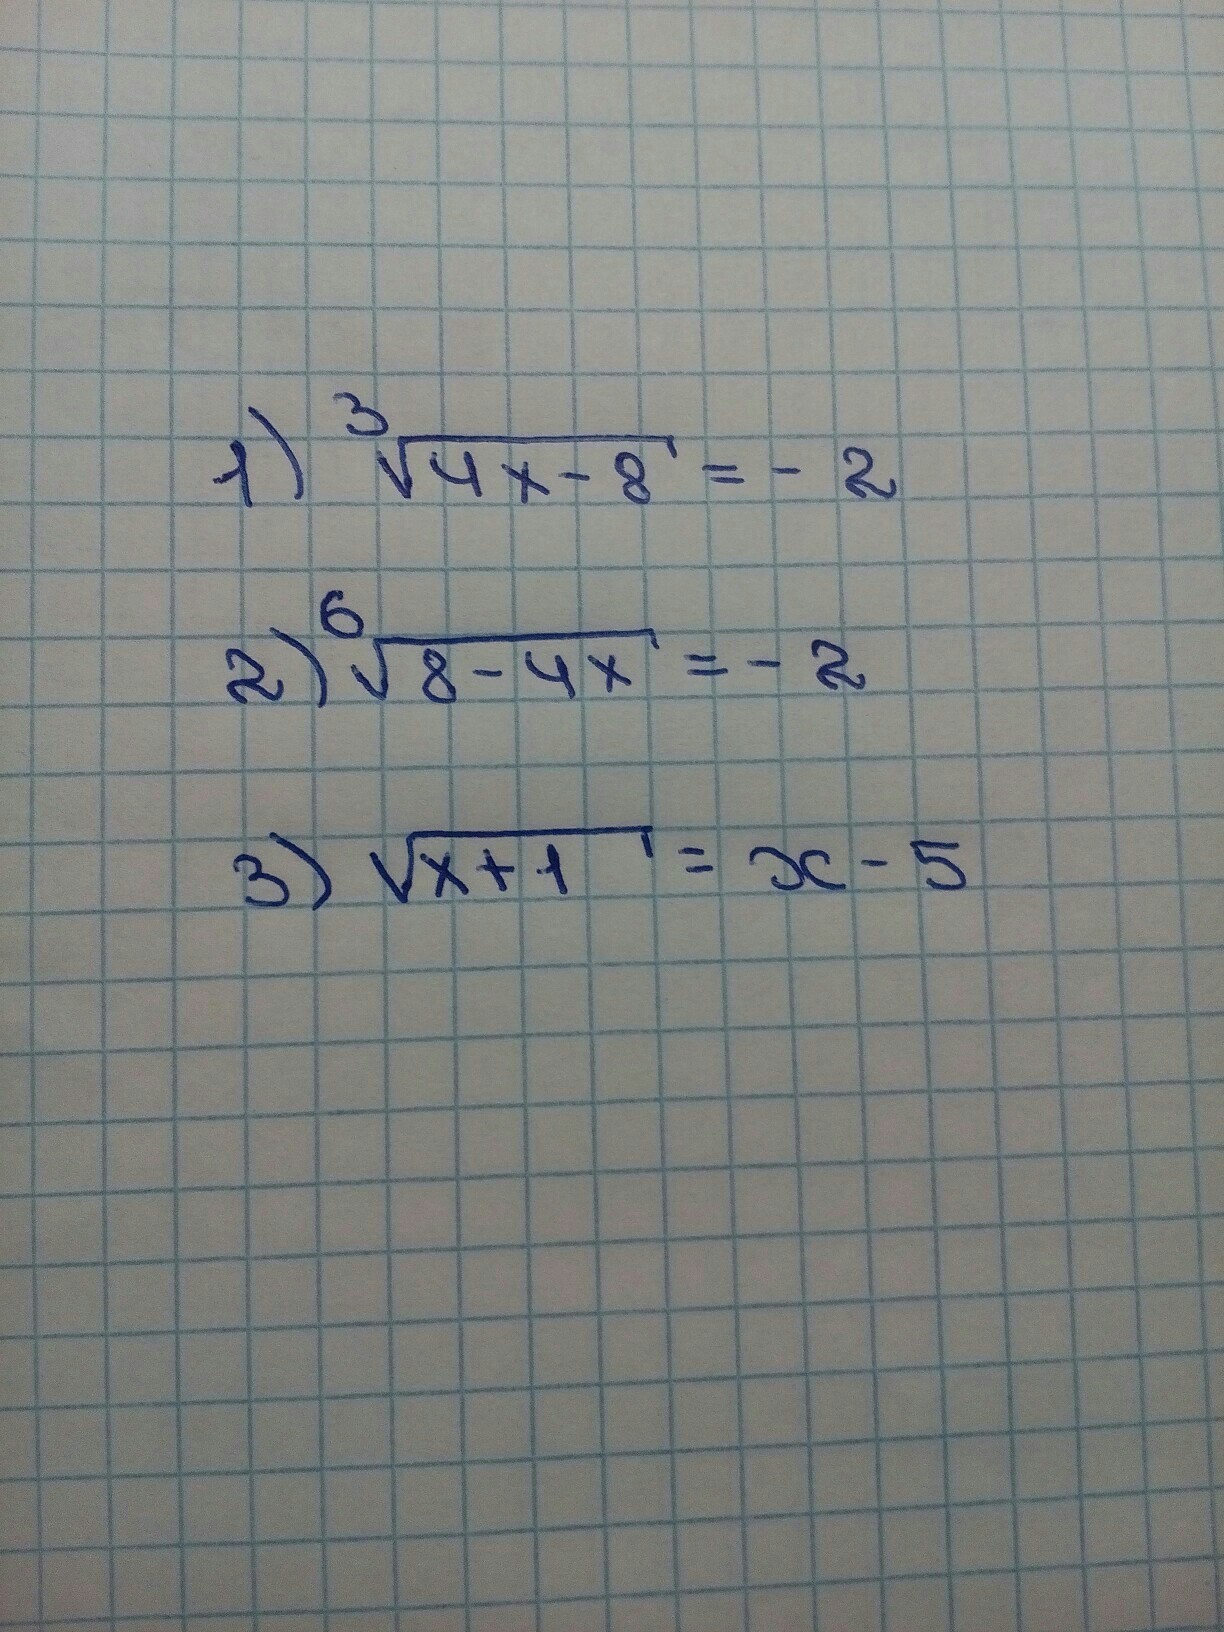 1) ³√(4x-8) = -2
2) ⁶√(8-4x) = -2
3) √(x+1) = x-5